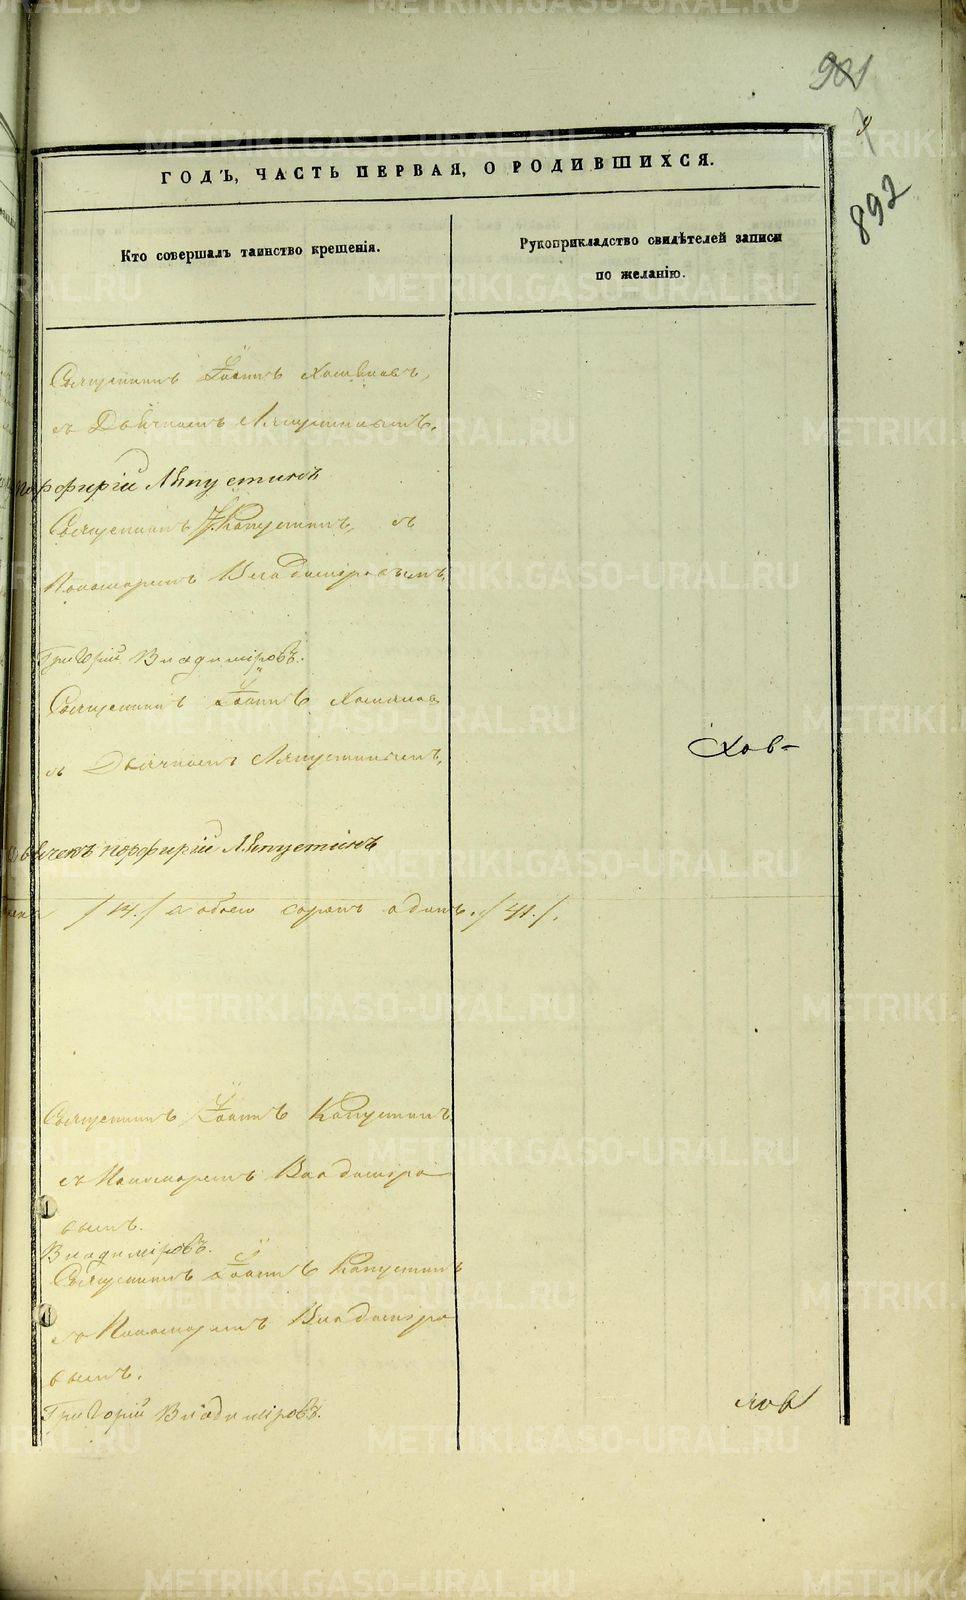 901
892
ГОДЪ, ЧАСТЬ ПЕРВАЯ, О РОДИВШИХСЯ.
Кто совершалъ таинство крещенія.
Рукоприкладство свидѣтелей записи
по желанію.
Священникъ Іоаннъ Хомяковъ,
съ Дьячкомъ Ляпустинымъ.
порфирій Ляпустинъ
Священникъ І. Капустинъ, съ
Пономаремъ Владиміровымъ,
Григорій Владиміровъ.
Священникъ Іоаннъ Хомяковъ
съ Дьячкомъ Ляпустинымъ,
Хов-
Дьячекъ порфирій Ляпустинъ
/14./ а обоего сорокъ одинъ. /41./.
Священникъ Іоаннъ Капустинъ
съ Пономаремъ Владиміро
вымъ.
Владиміровъ.
Священникъ Іоаннъ Капустинъ
съ Пономаремъ Владиміро
вымъ.
Григорій Владиміровъ.
METRIKI.GASO-URAL.RU